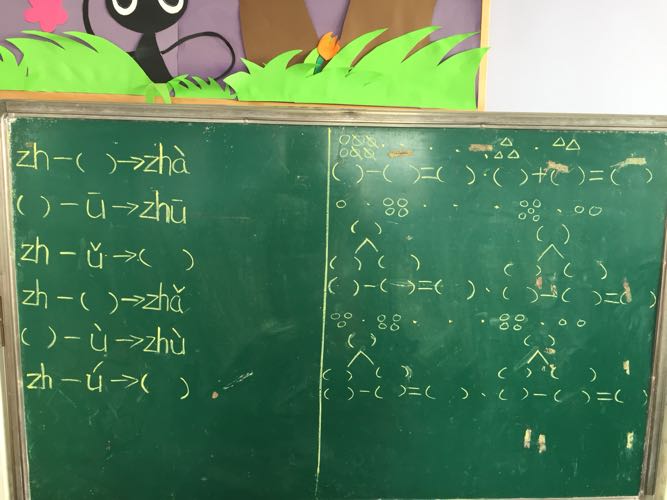 zh-( )→zhà
( )-ū→zhū
zh-ǔ→( )
zh-( )→zhǎ
( )-ù→zhù
zh-ú→( )
( )-( )=( ) ( )+( )=( )
( ) ( )
( ) ( ) ( ) ( )
( )-( )=( ) ( )-( )=( )
( ) ( )
( ) ( ) ( ) ( )
( )-( )=( ) ( )-( )=( )